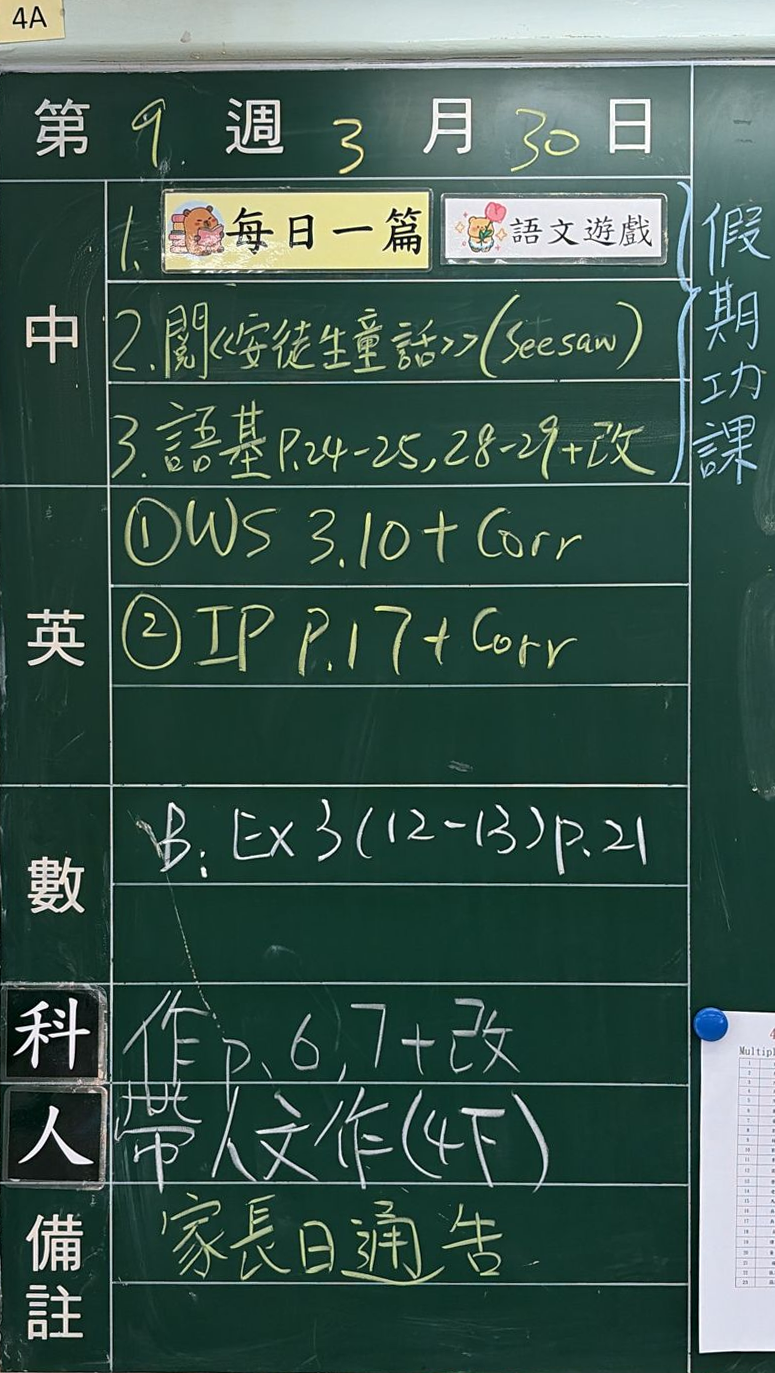 4A
第 9 週 3 月 30 日
中
1. 每日一篇 語文遊戲
2. 閱《安徒生童話》(Seesaw)
3. 語基 P.24-25, 28-29+改
假期功課
英
① WS 3.10 + Corr
② IP P.17 + Corr
數
B: Ex 3 (12-13) p.21
科
作 p.6,7+改
人
帶人文作(4下)
備註
家長日通告